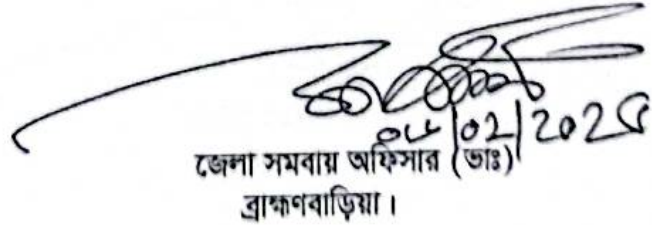 /02/202
জেলা সমবায় অফিসার (ভাঃ)
ব্রাহ্মণবাড়িয়া।